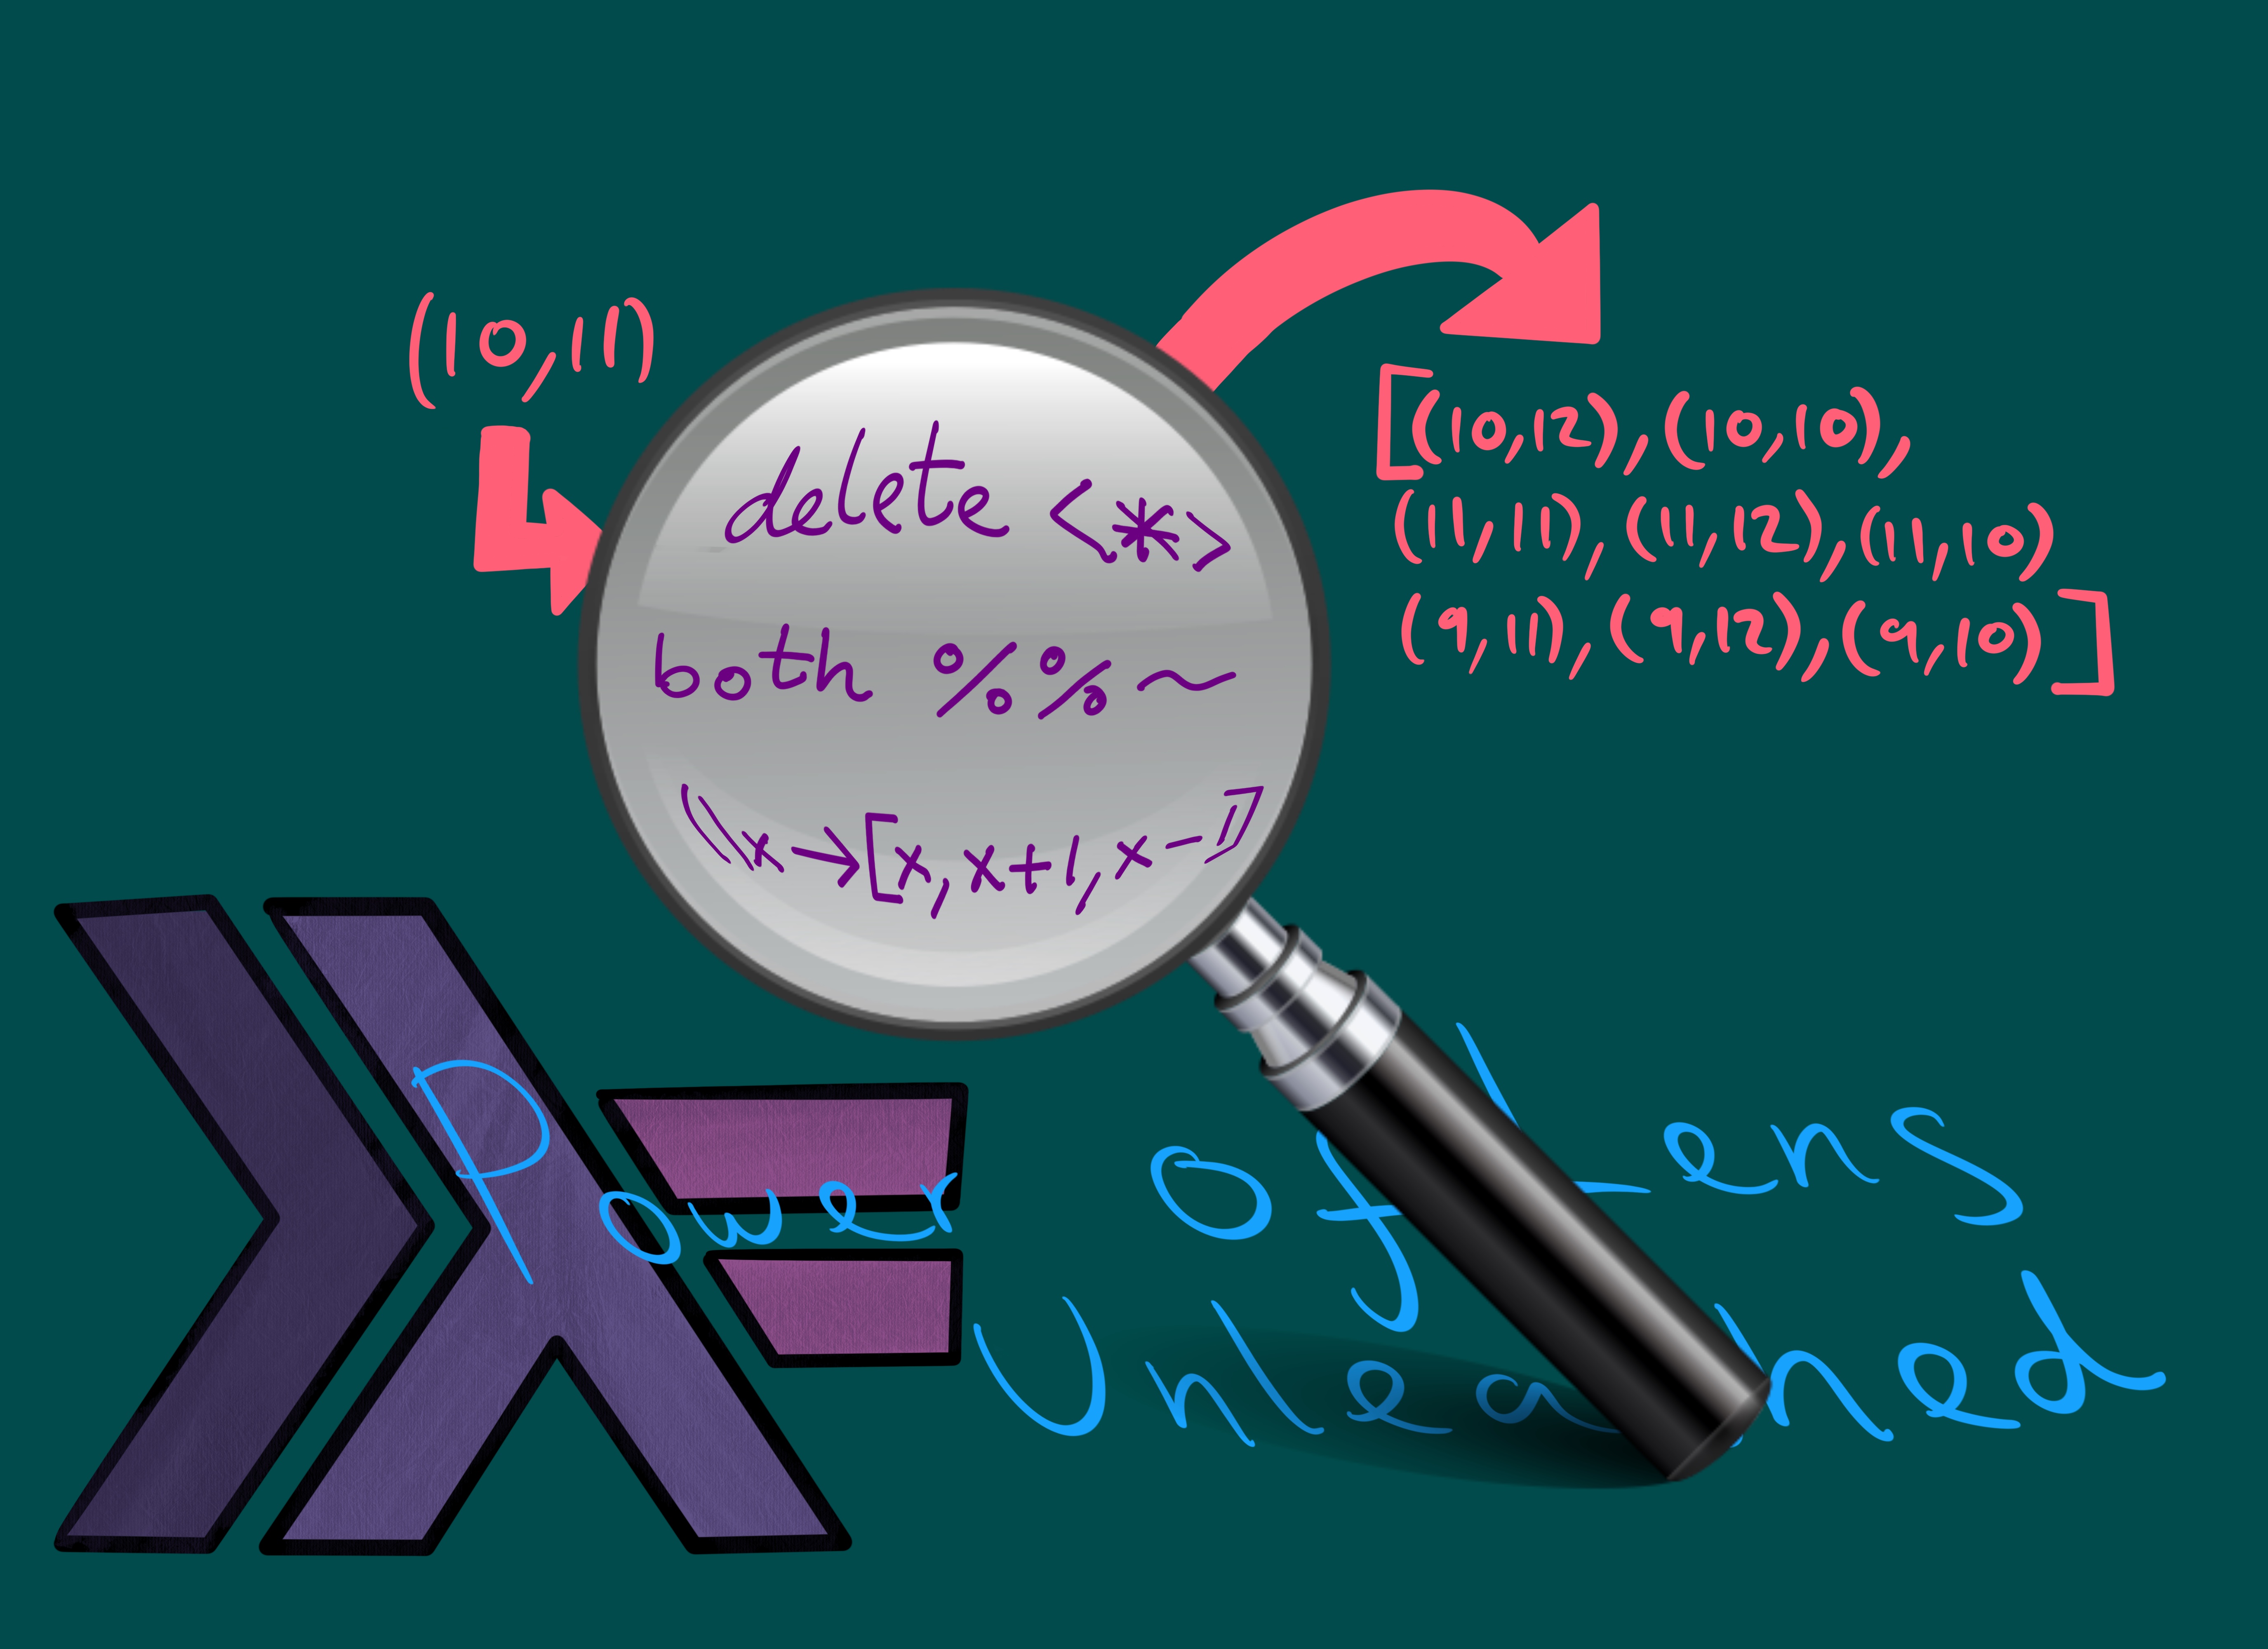 (10,11)
delete <*>
both %%~
(\x→[x,x+1,x-1]
[(10,12),(10,10),
(11,11),(11,12),(11,10)
(9,11),(9,12),(9,10)]
Power of Lens
Unleashed